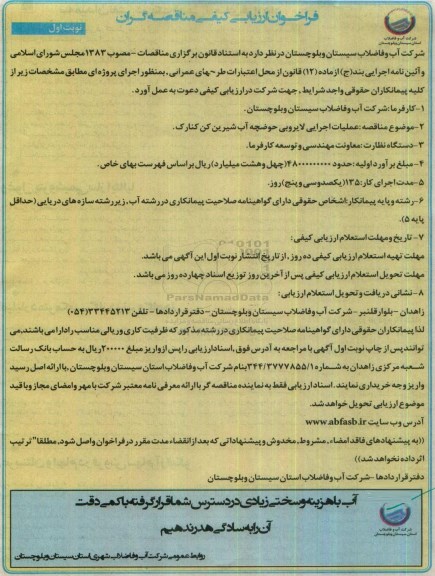 فراخوان ارزیابی کیفی مناقصه گران
نوبت اول
شرکت آب وفاضلاب سیستان وبلوچستان در نظر دارد به استناد قانون برگزاری مناقصات - مصوب ۱۳۸۳ مجلس شورای اسلامی
و آئین نامه اجرایی بند (ج) از ماده (۱۲) قانون از محل اعتبارات طرحهای عمرانی، بمنظور اجرای پروژه ای مطابق مشخصات زیر از
کلیه پیمانکاران حقوقی واجد شرایط، جهت شرکت در ارزیابی کیفی دعوت به عمل آورد.
۱- کارفرما: شرکت آب وفاضلاب سیستان وبلوچستان.
۲- موضوع مناقصه: عملیات اجرایی لایروبی حوضچه آب شیرین کن کنارک.
۳- دستگاه نظارت: معاونت مهندسی و توسعه کارفرما.
۴- مبلغ برآورد اولیه: حدود ۴۸۰۰۰۰۰۰۰۰۰ (چهل وهشت میلیارد) ریال بر اساس فهرست بهای خاص.
۵- مدت اجرای کار: ۱۳۵ (یکصدوسی و پنج) روز.
۶- رشته و پایه پیمانکار: اشخاص حقوقی دارای گواهینامه صلاحیت پیمانکاری در رشته آب، زیر رشته سازه های دریایی (حداقل
پایه ۵).
۷- تاریخ و مهلت استعلام ارزیابی کیفی:
مهلت تهیه استعلام ارزیابی کیفی ده روز، از تاریخ انتشار نوبت اول این آگهی می باشد.
مهلت تحویل استعلام ارزیابی کیفی پس از آخرین روز توزیع اسناد چهارده روز می باشد.
ParsNamadData
۸- نشانی دریافت و تحویل استعلام ارزیابی:
زاهدان - بلوار قلنبر - شرکت آب وفاضلاب سیستان وبلوچستان - دفتر قراردادها - تلفن ۳۳۴۴۵۲۱۳ (۰۵۴)
لذا پیمانکاران حقوقی دارای گواهینامه صلاحیت پیمانکاری در رشته مذکور که ظرفیت کاری وریالی مناسب را دارا می باشند، می
توانند پس از چاپ نوبت اول آگهی با مراجعه به آدرس فوق، اسناد ارزیابی را پس از واریز مبلغ ۲۰۰۰۰۰ ریال به حساب بانک رسالت
شعبه مرکزی زاهدان به شماره ۳۴۴/۳۷۷۷۸۵۵/۱ بنام شرکت آب وفاضلاب استان سیستان وبلوچستان، با ارائه اصل رسید
واریز وجه خریداری نمایند. اسناد ارزیابی فقط به نماینده مناقصه گر با ارائه معرفی نامه معتبر شرکت با مهر وامضای مجاز وبا قید
موضوع ارزیابی تحویل خواهد شد.
آدرس وب سایت www.abfasb.ir
((به پیشنهادهای فاقد امضاء، مشروط، مخدوش و پیشنهاداتی که بعد از انقضاء مدت مقرر در فراخوان واصل شود، مطلقا" ترتیب
اثر داده نخواهد شد))
دفتر قراردادها - شرکت آب وفاضلاب استان سیستان وبلوچستان
آب با هزینه و سختی زیادی در دسترس شما قرار گرفته با کمی دقت
آن را به سادگی هدر ندهیم
روابط عمومی شرکت آب و فاضلاب شهری استان سیستان وبلوچستان